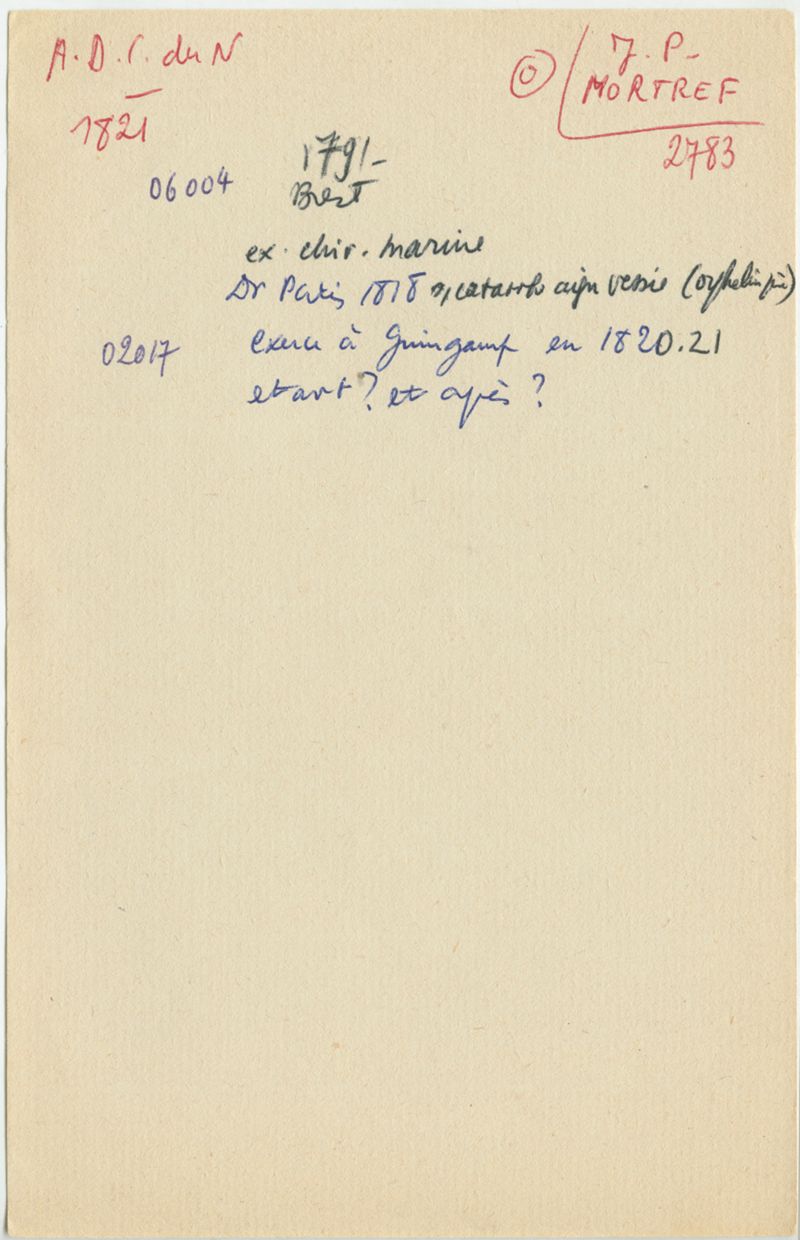 A.D.C. du N
1821
J. P.
MORTREF
2783
06004
1791-
Brest
ex. chir. marine
Dr Paris 1818 catarrhe aigu vessie (orphelin père)
02017
exerce à Guingamp en 1820.21
et avt ? et après ?